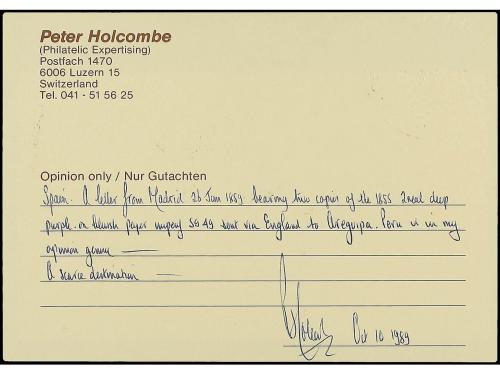 Peter Holcombe
(Philatelic Expertising)
Postfach 1470
6006 Luzern 15
Switzerland
Tel. 041 - 51 56 25
Opinion only / Nur Gutachten
Spain. A letter from Madrid 26 Jan bearing two copies of the 1855 2 real deep
purple on bluish paper sent via England to Arequipa. Peru is in my
opinion genuine
A scarce destination
Oct 10 1989